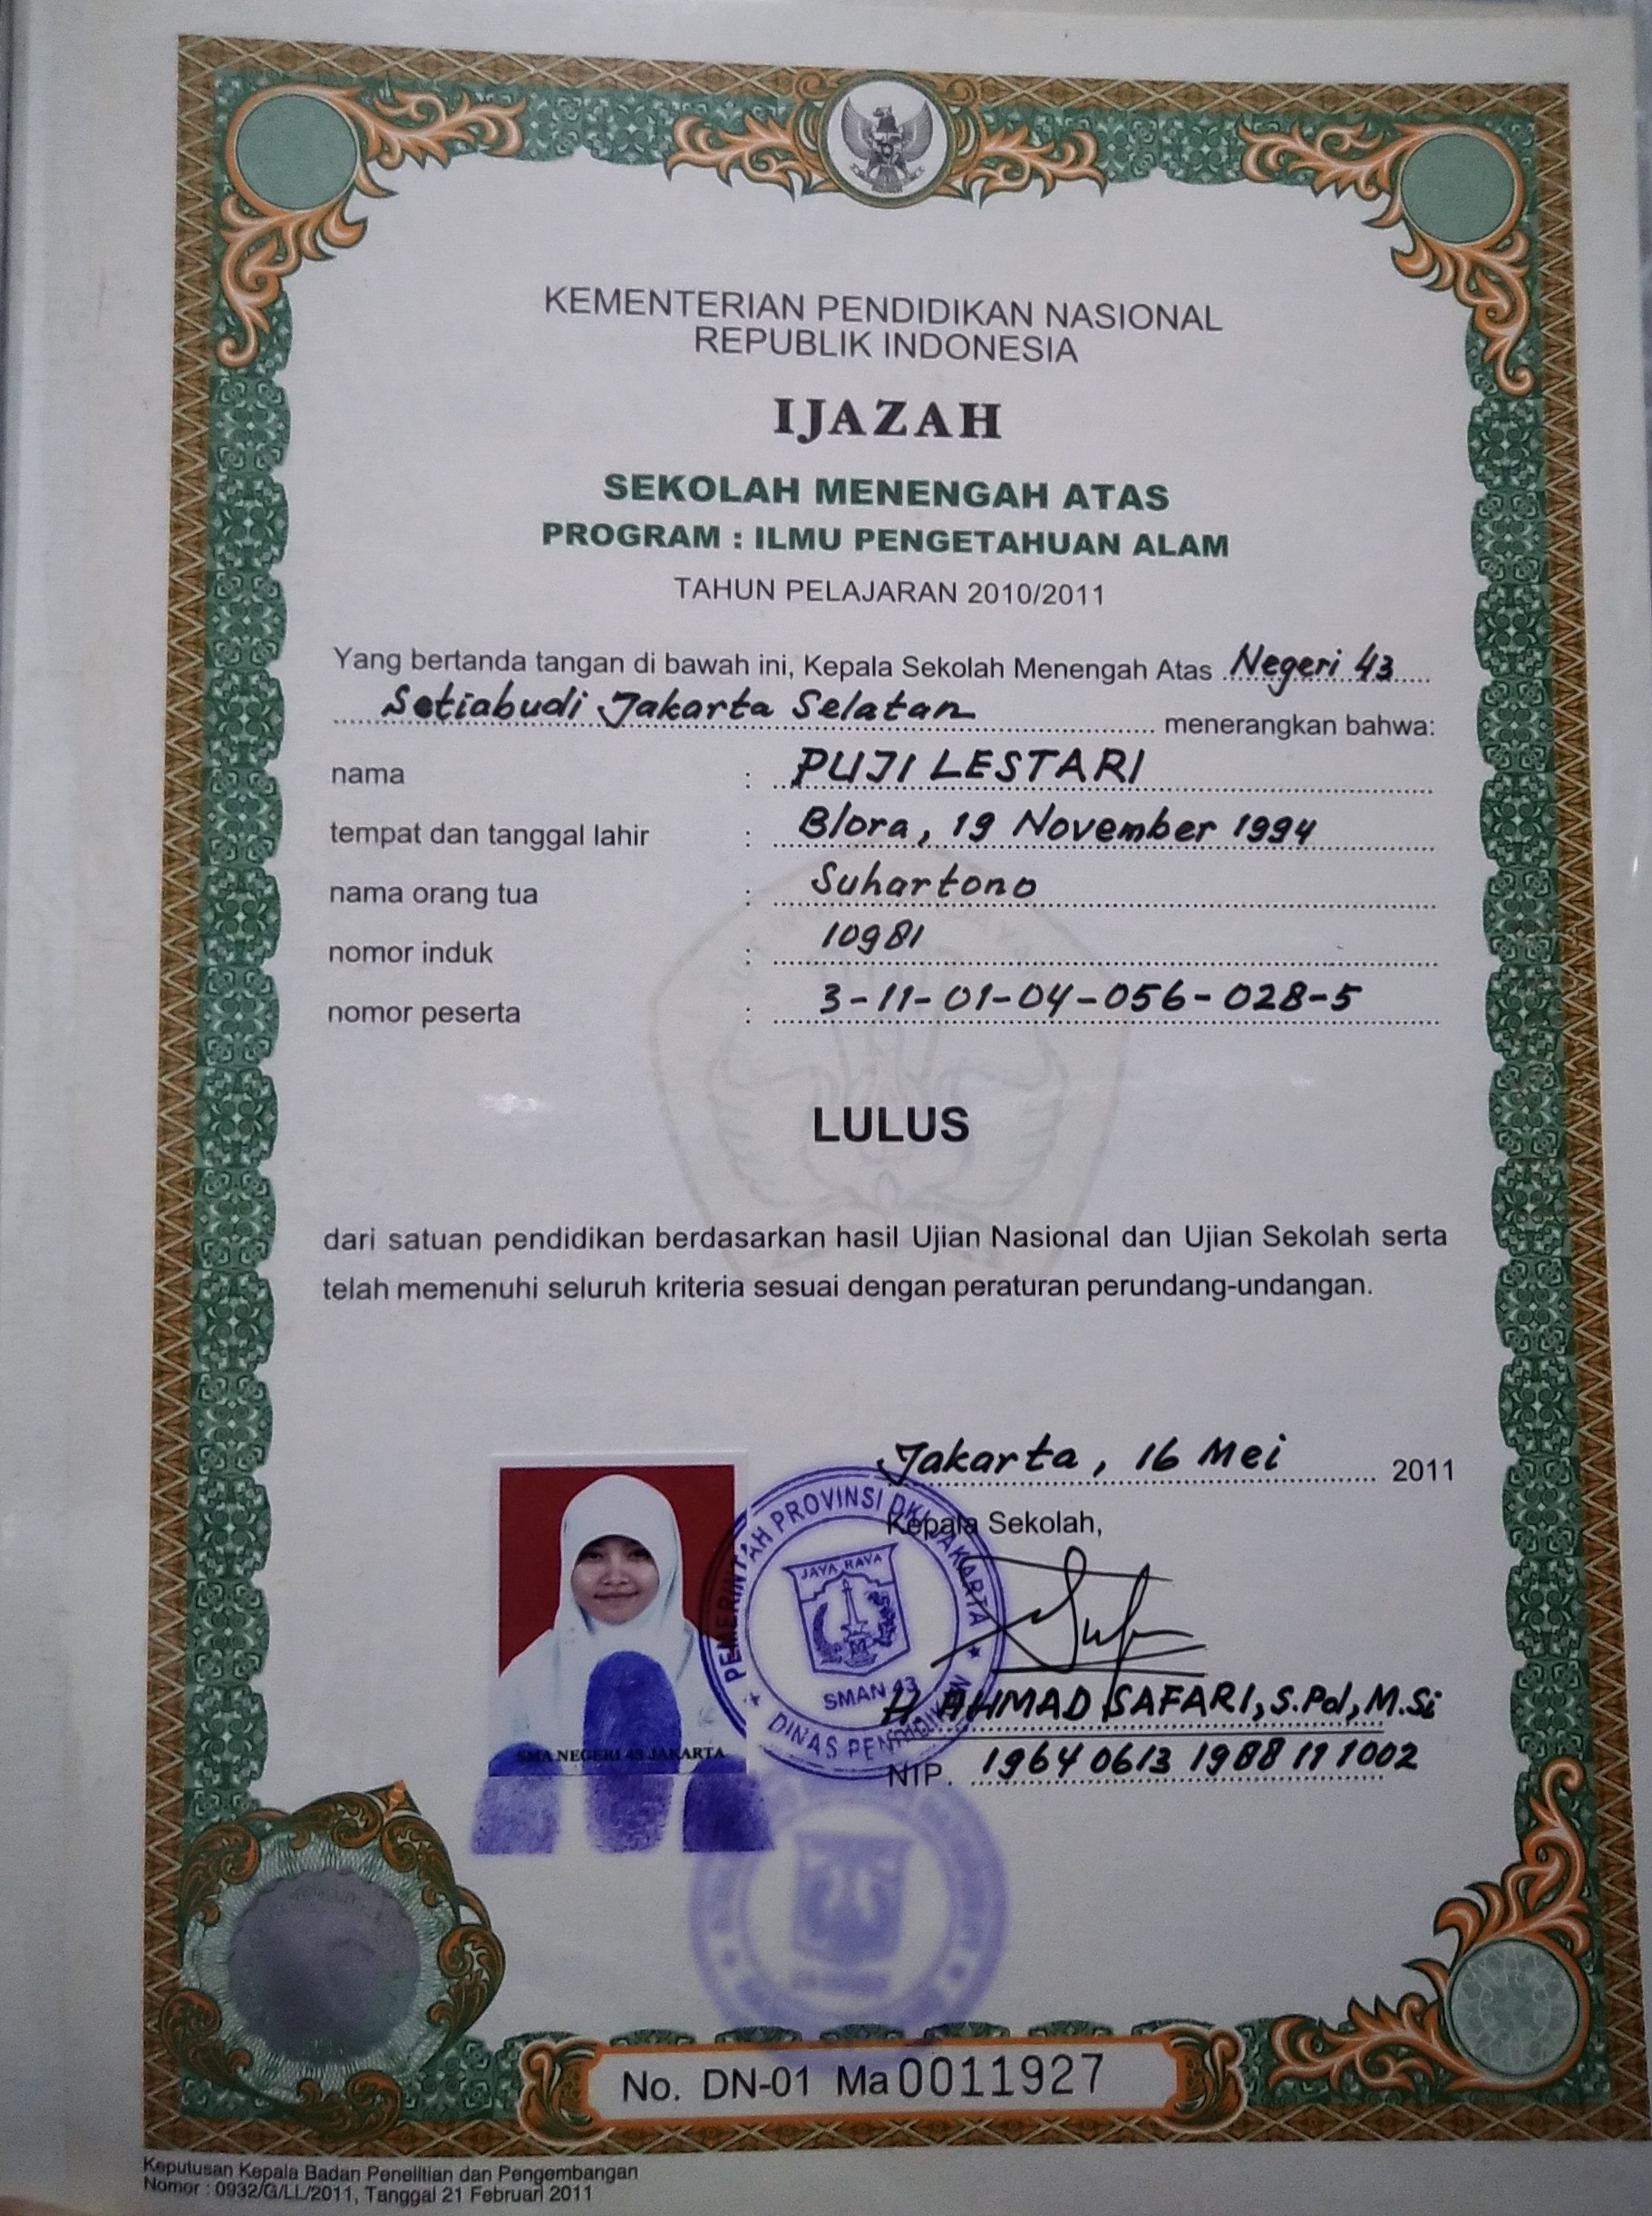 KEMENTERIAN PENDIDIKAN NASIONAL
REPUBLIK INDONESIA
IJAZAH
SEKOLAH MENENGAH ATAS
PROGRAM : ILMU PENGETAHUAN ALAM
TAHUN PELAJARAN 2010/2011
Yang bertanda tangan di bawah ini, Kepala Sekolah Menengah Atas Negeri 43
Setiabudi Jakarta Selatan menerangkan bahwa:
nama : PUJI LESTARI
tempat dan tanggal lahir : Blora, 19 November 1994
nama orang tua : Suhartono
nomor induk : 10981
nomor peserta : 3-11-01-04-056-028-5
LULUS
dari satuan pendidikan berdasarkan hasil Ujian Nasional dan Ujian Sekolah serta
telah memenuhi seluruh kriteria sesuai dengan peraturan perundang-undangan.
Jakarta, 16 Mei 2011
Kepala Sekolah,
PEMERINTAH PROVINSI DKI JAKARTA
JAYA RAYA
SMAN 43
DINAS PENDIDIKAN
H AHMAD SAFARI, S.Pd, M.Si
NIP. 19640613 1988 11 1002
SMA NEGERI 43 JAKARTA
No. DN-01 Ma 0011927
Keputusan Kepala Badan Penelitian dan Pengembangan
Nomor : 0932/G/LL/2011, Tanggal 21 Februari 2011